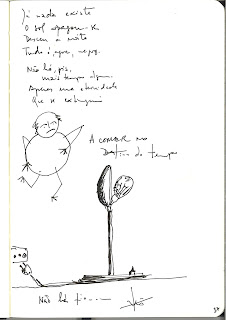 Já nada existe
O sol apagou-se
Desceu a noite
Tudo é, agora,
Não há, pois,
mais tempo algum.
Apenas uma eternidade
Que se extinguiu
A COMER no
Destino do tempo
Não há fio